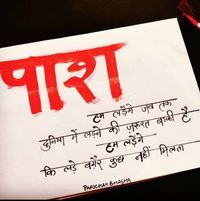 पाश
हम लड़ेंगे जब तक
दुनिया में लड़ने की ज़रुरत बाकी है
हम लड़ेंगे
कि लड़े बगैर कुछ नहीं मिलता
PARICHAY BHASHA